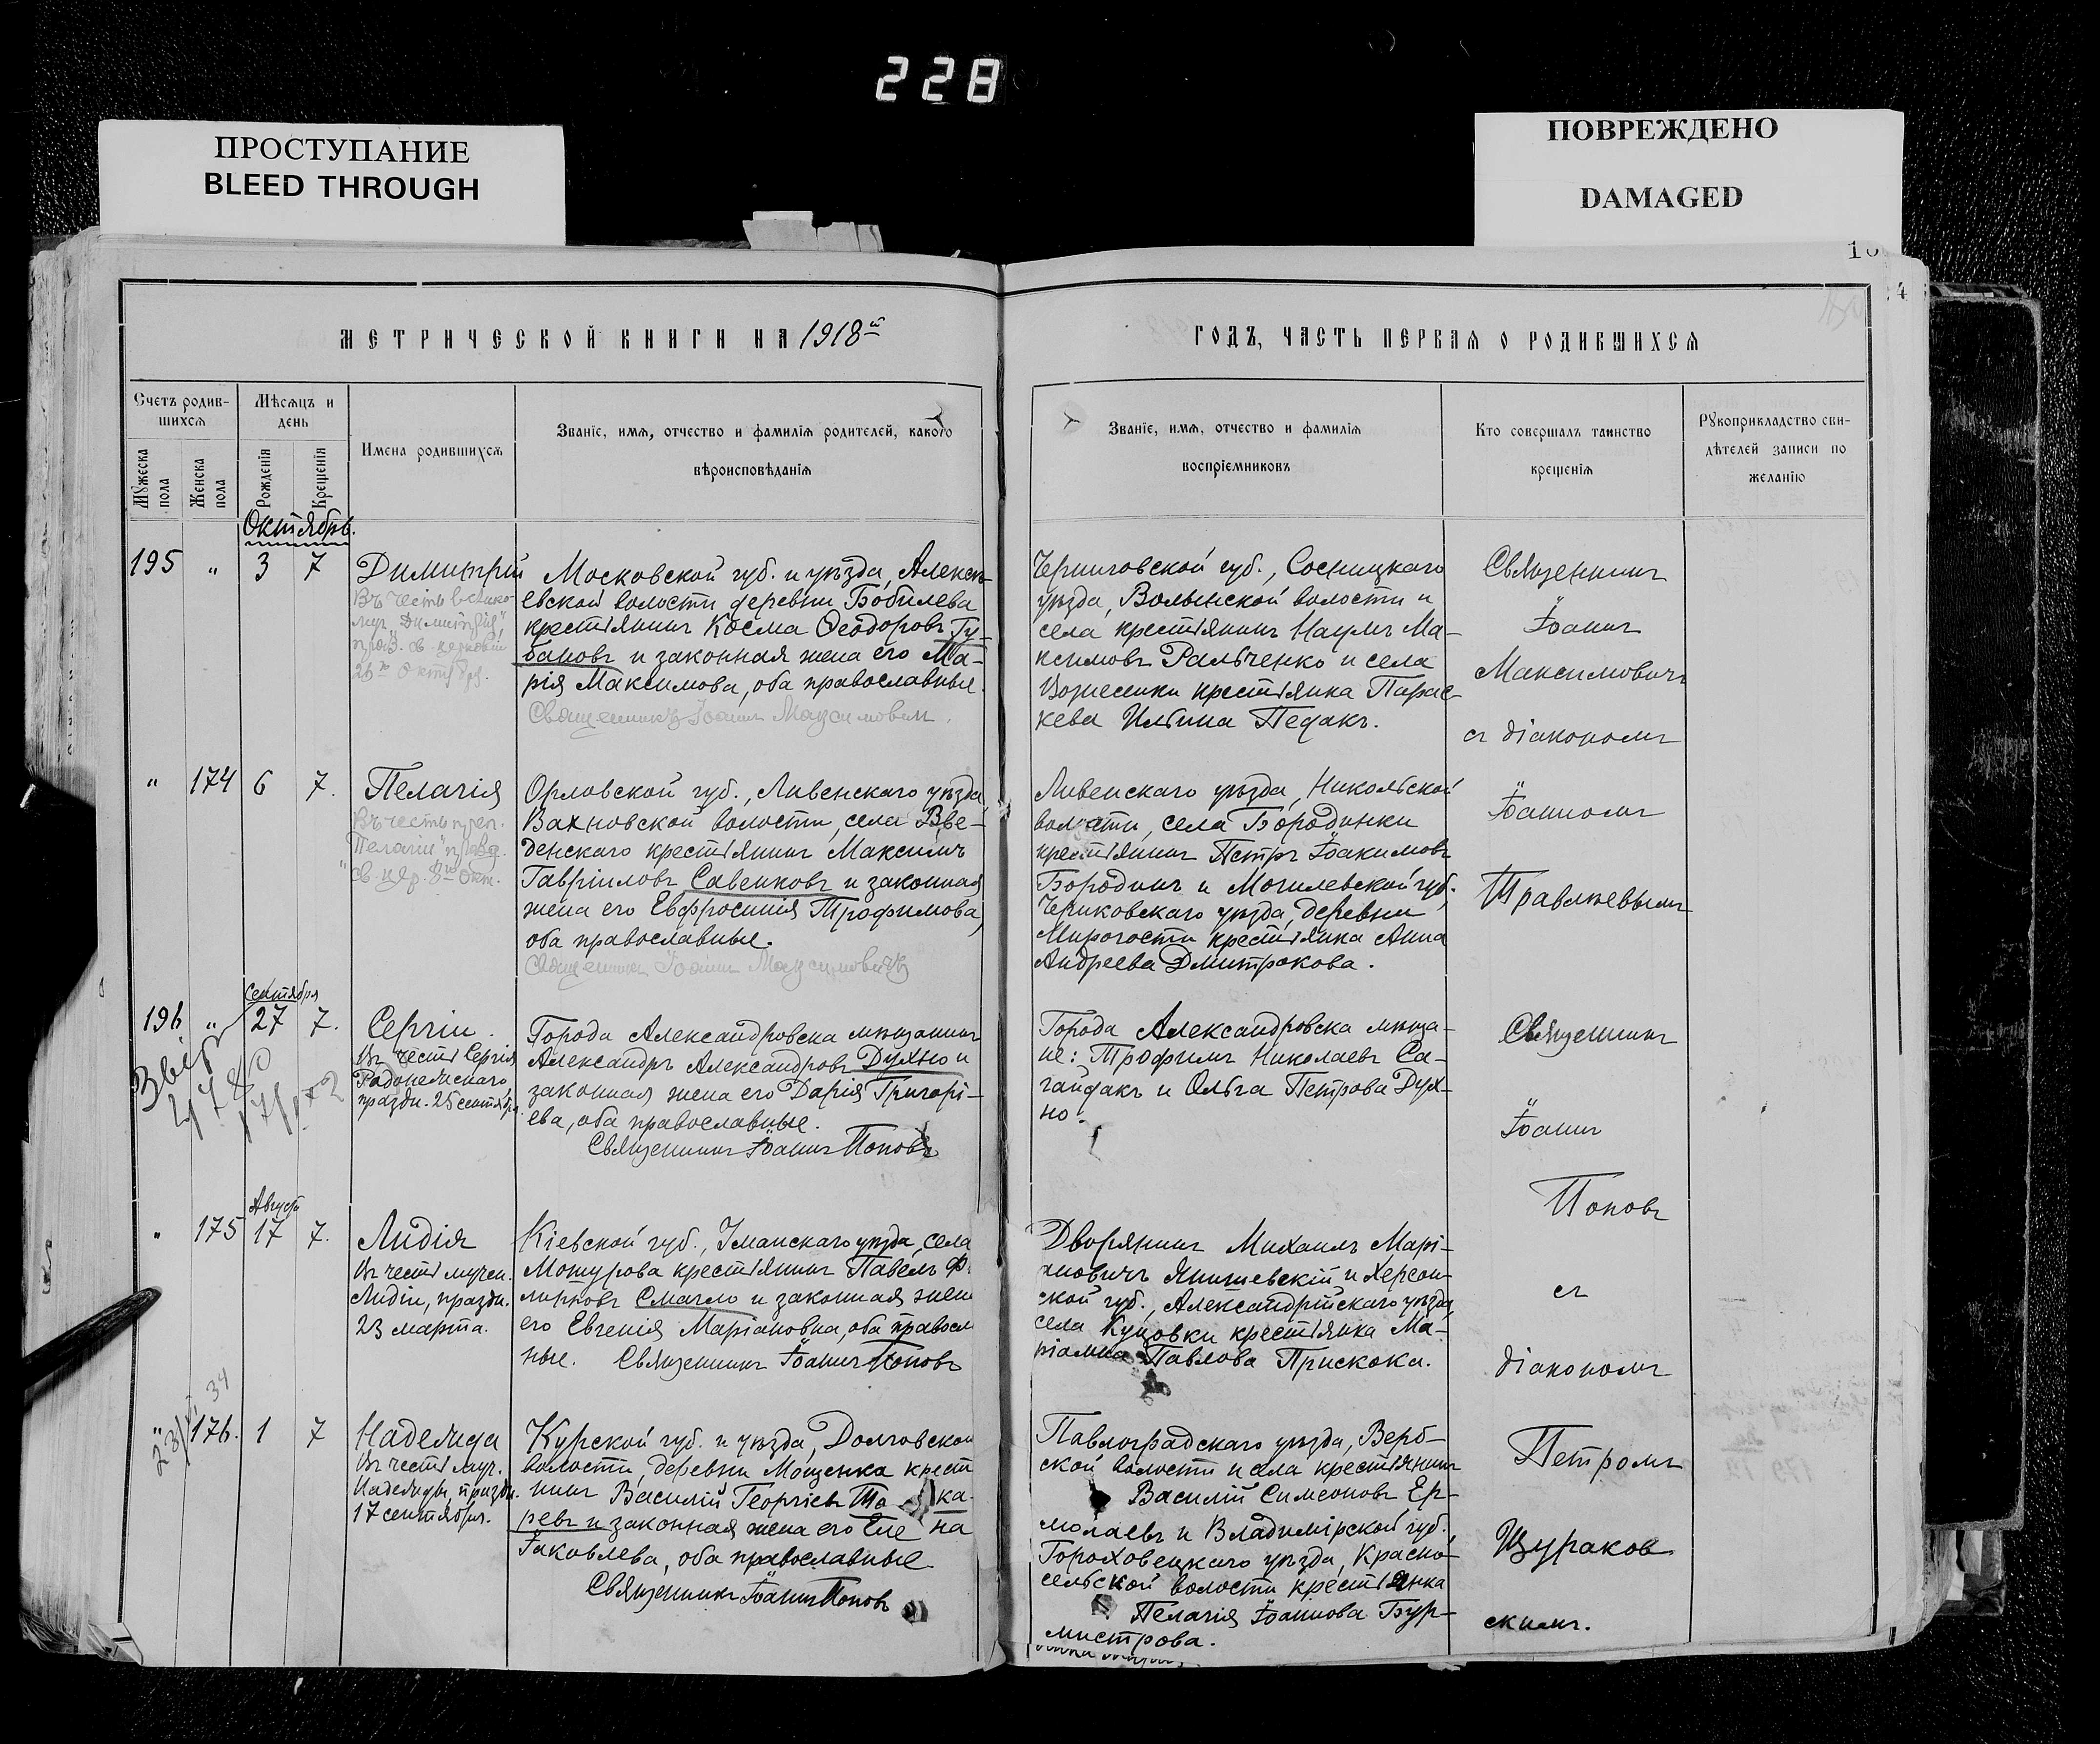 228
ПРОСТУПАНИЕ
BLEED THROUGH
ПОВРЕЖДЕНО
DAMAGED
4
МЕТРИЧЕСКОЙ КНИГИ НА 1918й
ГОДЪ, ЧАСТЬ ПЕРВАЯ О РОДИВШИХСЯ
Счетъ родив-
шихся
Мѣсяцъ и
день
Мужеска
пола
Женска
пола
Рожденія
Крещенія
Имена родившихся
Званіе, имя, отчество и фамилія родителей, какого
вѣроисповѣданія
Званіе, имя, отчество и фамилія
воспріемниковъ
Кто совершалъ таинство
крещенія
Рукоприкладство сви-
дѣтелей записи по
желанію
Октябрь.
195 " 3 7
Димитрій
Въ честь велико-
муч. Димитрія
празд. св. церковію
26го Октября.
Московской губ. и уѣзда, Алексѣ-
евской волости деревни Бобылева
крестьянинъ Косма Ѳеодоровъ Гу-
бановъ и законная жена его Ма-
рія Максимова, оба православные.
Священникъ Іоаннъ Максимовичъ.
Черниговской губ., Сосницкаго
уѣзда, Волынской волости и
села крестьянинъ Наумъ Ма-
ксимовъ Ральченко и села
Вознесенки крестьянка Парас-
кева Ильина Педакъ.
Священникъ
Іоаннъ
Максимовичъ
съ діакономъ
" 174 6 7.
Пелагія
Въ честь преп.
Пелагіи празд.
св. цер. 8го Окт.
Орловской губ., Ливенскаго уѣзда,
Вахновской волости, села Вве-
денскаго крестьянинъ Максимъ
Гавріиловъ Савенковъ и законная
жена его Евфросинія Трофимова,
оба православные.
Священникъ Іоаннъ Максимовичъ
Ливенскаго уѣзда, Никольской
волости, села Бородинки
крестьянинъ Петръ Іоакимовъ
Бородинъ и Могилевской губ.
Чериковскаго уѣзда, деревни
Мирогости крестьянка Анна
Андреева Дмитрокова.
Іоанномъ
Травлеевымъ
Сентября
196 " 27 7.
Сергій.
Въ честь Сергія
Радонежскаго,
праздн. 25 сентября.
Города Александровска мѣщанинъ
Александръ Александровъ Духно и
законная жена его Дарія Григорі-
ева, оба православные.
Священникъ Іоаннъ Поповъ
Города Александровска мѣща-
не: Трофимъ Николаевъ Са-
гайдакъ и Ольга Петрова Дух-
но.
Священникъ
Іоаннъ
Поповъ
Августа
" 175 17 7.
Лидія
Въ честь мучен.
Лидіи, праздн.
23 марта.
Кіевской губ., Уманскаго уѣзда, села
Мошурова крестьянинъ Павелъ Ф
липповъ Смагло и законная жен
его Евгенія Маріановна, оба правосл
ные. Священникъ Іоаннъ Поповъ
Дворянинъ Михаилъ Марі-
ановичъ Янишевскій и Херсон-
ской губ., Александрійскаго уѣзда,
села Куцовки крестьянка Ма-
ріамна Павлова Прискока.
съ
діакономъ
" 176. 1 7
Надежда
Въ честь муч.
Надежды, праздн.
17 сентября.
Курской губ. и уѣзда, Долговской
волости, деревни Мощенка крест
нинъ Василій Георгіевъ То ка-
ревъ и законная жена его Еле на
Іаковлева, оба православные
Священникъ Іоаннъ Поповъ
Павлоградскаго уѣзда, Верб-
ской волости и села крестьянинъ
Василій Симеоновъ Ер-
молаевъ и Владимірской губ.
Гороховецкаго уѣзда, Красно-
сельской волости крестьянка
Пелагія Іоаннова Бур-
мистрова.
Петромъ
Щураков
скимъ.